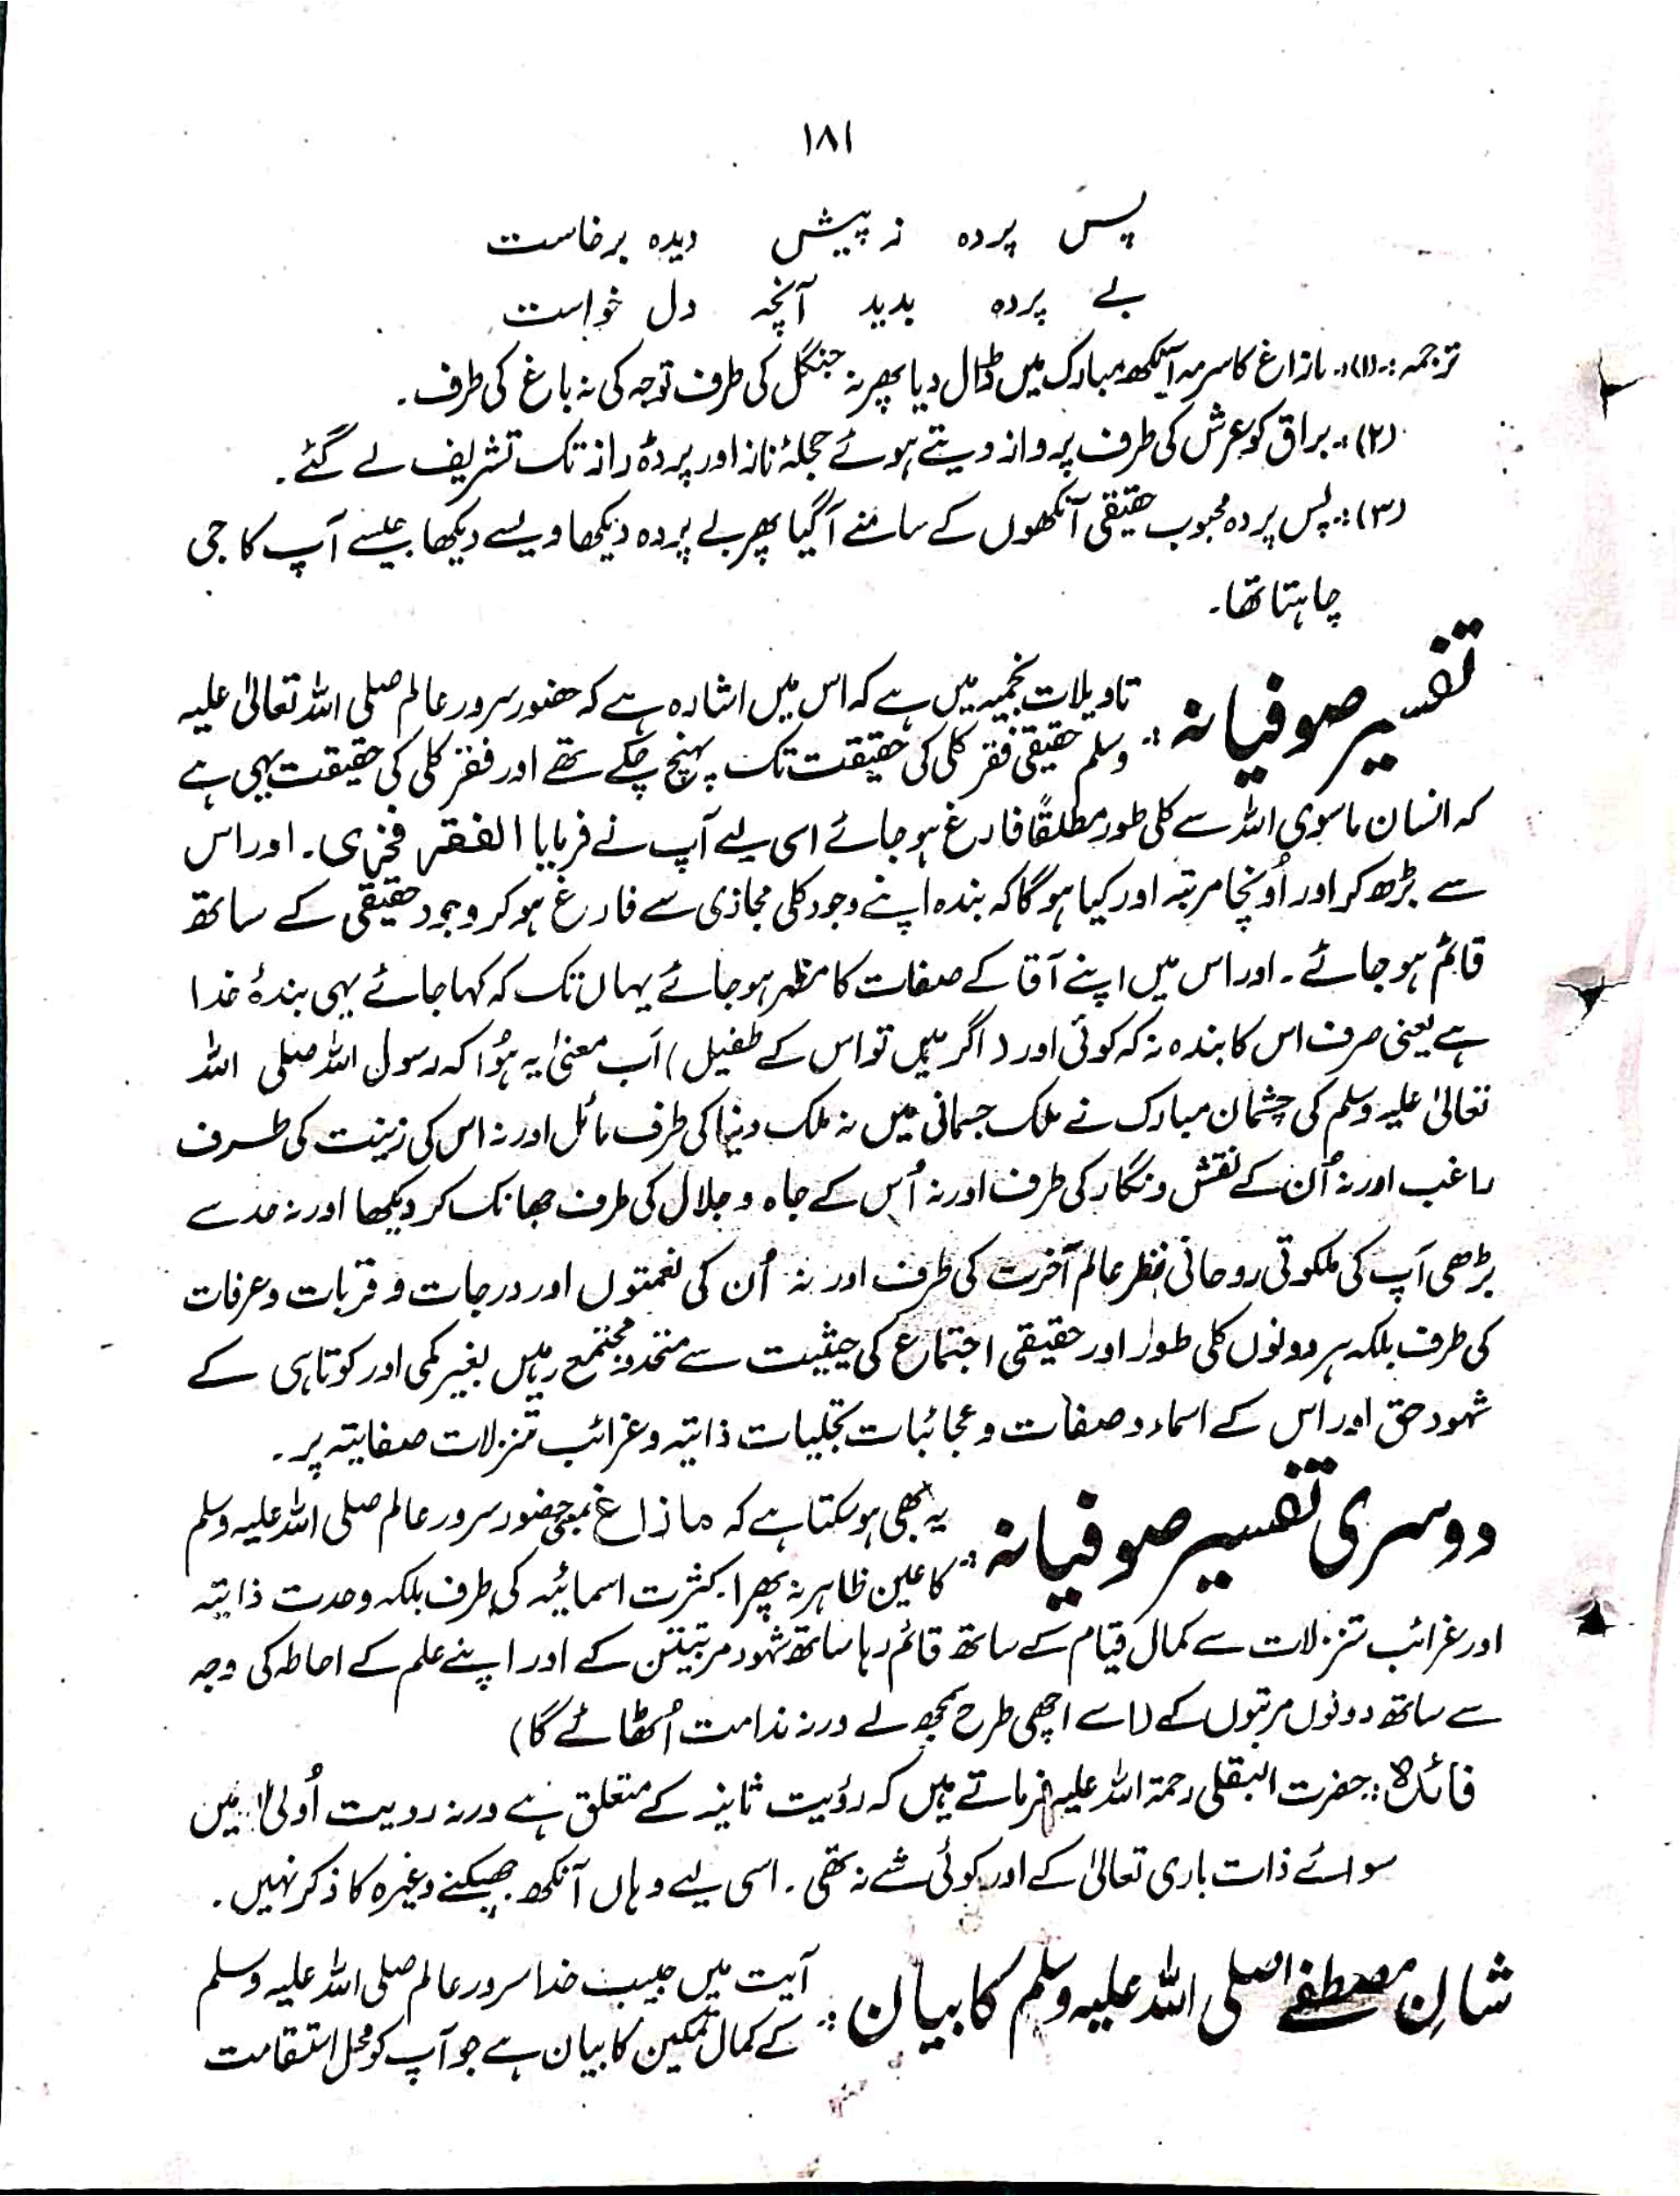 ۱۸۱
پس پردہ ز پیش دیدہ برخاست
بے پردہ بدید آنچہ دل خواست
ترجمہ:۔(۱)۔ مازاغ کا سرمہ آنکھ مبارک میں ڈال دیا پھر نہ جنگل کی طرف توجہ کی نہ باغ کی طرف۔
(۲)۔ براق کو عرش کی طرف پرواز دیتے ہوئے حجلۂ ناز اور پردۂ راز تک تشریف لے گئے۔
(۳)۔ پس پردہ محبوب حقیقی آنکھوں کے سامنے آگیا پھر بے پردہ دیکھا ویسے دیکھا جیسے آپ کا جی
چاہتا تھا۔
تفسیر صوفیانہ:۔ تاویلات نجمیہ میں ہے کہ اس میں اشارہ ہے کہ حضور سرور عالم صلی اللہ تعالیٰ علیہ
وسلم حقیقی فقر کلی کی حقیقت تک پہنچ چکے تھے اور فقر کلی کی حقیقت یہی ہے
کہ انسان ماسوی اللہ سے کلی طور مطلقاً فارغ ہو جائے اسی لیے آپ نے فرمایا الفقر فخری۔ اور اس
سے بڑھ کر اور اُونچا مرتبہ اور کیا ہو گا کہ بندہ اپنے وجود کلی مجازی سے فارغ ہو کر وجود حقیقی کے ساتھ
قائم ہو جائے۔ اور اس میں اپنے آقا کے صفات کا مظہر ہو جائے یہاں تک کہ کہا جائے یہی بندۂ خدا
ہے یعنی صرف اس کا بندہ نہ کہ کوئی اور (اگر ہیں تو اس کے طفیل) اَب معنیٰ یہ ہُوا کہ رسول اللہ صلی اللہ
تعالیٰ علیہ وسلم کی چشمان مبارک نے ملک جسمانی میں نہ ملک دنیا کی طرف مائل اور نہ اس کی زینت کی طرف
راغب اور نہ اُن کے نقش و نگار کی طرف اور نہ اُس کے جاہ و جلال کی طرف جھانک کر دیکھا اور نہ حد سے
بڑھی آپ کی ملکوتی روحانی نظر عالم آخرت کی طرف اور نہ اُن کی نعمتوں اور درجات و قربات و عرفات
کی طرف بلکہ ہر دونوں کلی طور اور حقیقی اجتماع کی حیثیت سے متحد و مجتمع رہیں بغیر کمی اور کوتاہی کے
شہود حق اور اس کے اسماء و صفات و عجائبات تجلیات ذاتیہ و غرائب تنزلات صفاتیہ پر۔
دوسری تفسیر صوفیانہ:۔ یہ بھی ہو سکتا ہے کہ مازاغ بمعنی حضور سرور عالم صلی اللہ علیہ وسلم
کا عین ظاہر نہ پھرا کثرت اسمائیہ کی طرف بلکہ وحدت ذاتیہ
اور غرائب تنزلات سے کمال قیام کے ساتھ قائم رہا ساتھ شہود مرتبتین کے اور اپنے علم کے احاطہ کی وجہ
سے ساتھ دونوں مرتبوں کے (اسے اچھی طرح سمجھ لے ورنہ ندامت اُٹھائے گا)
فائدہ:۔ حضرت البقلی رحمۃ اللہ علیہ فرماتے ہیں کہ رؤیت ثانیہ کے متعلق ہے ورنہ رویت اُولیٰ میں
سوائے ذات باری تعالیٰ کے اور کوئی شے نہ تھی۔ اسی لیے وہاں آنکھ جھپکنے وغیرہ کا ذکر نہیں۔
شانِ مصطفےٰ صلی اللہ علیہ وسلم کا بیان:۔ آیت میں حبیب خدا سرور عالم صلی اللہ علیہ وسلم
کے کمال تمکین کا بیان ہے جو آپ کو محل استقامت